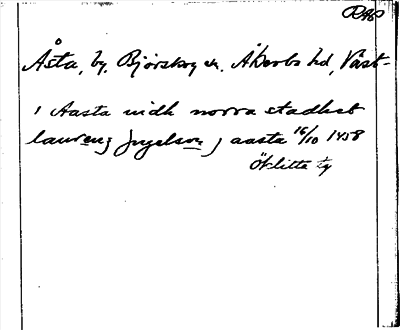 RAp
Åsta, by, Björskog sn. Åkerbo hd, Väst-
i Aasta widh norra stadhet
laurenz jngelson j aasta 16/10 1458
Ök-litta ty